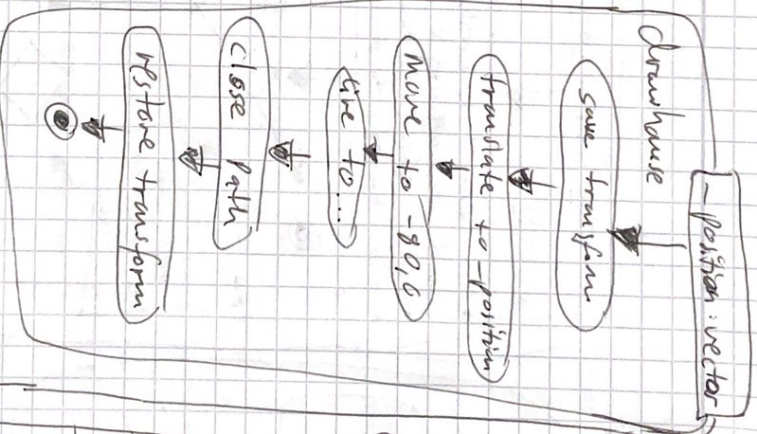 _position : vector
drawhouse
save transform
translate to _position
move to -80,0
line to...
close path
restore transform